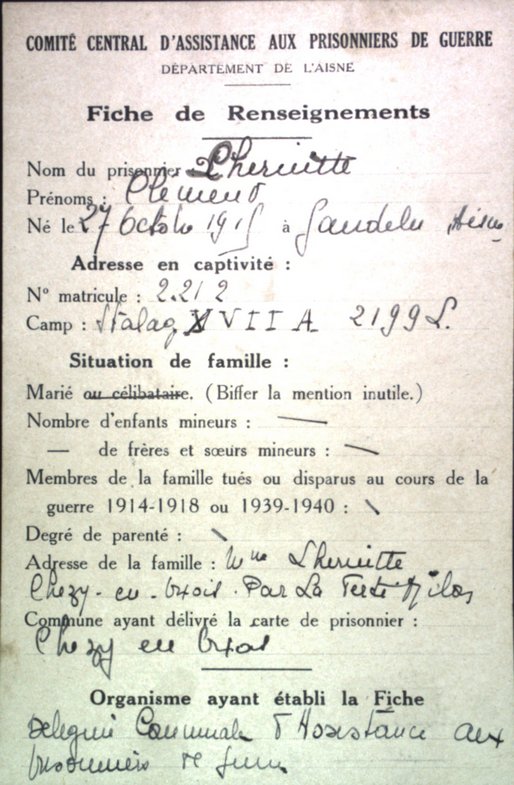 COMITÉ CENTRAL D'ASSISTANCE AUX PRISONNIERS DE GUERRE
DÉPARTEMENT DE L'AISNE
Fiche de Renseignements
Nom du prisonnier Lhermitte
Prénoms : Clément
Né le 27 Octobre 1915 à Gandelu Aisne
Adresse en captivité :
N° matricule : 2.212
Camp : Stalag XVII A 2199 L.
Situation de famille :
Marié ou célibataire. (Biffer la mention inutile.)
Nombre d'enfants mineurs : —
— de frères et sœurs mineurs : —
Membres de la famille tués ou disparus au cours de la
guerre 1914-1918 ou 1939-1940 : \
Degré de parenté : \
Adresse de la famille : Mme Lhermitte
Chézy-en-Orxois. Par La Ferté Milon
Commune ayant délivré la carte de prisonnier :
Chézy en Orxois
Organisme ayant établi la Fiche
Communale d'Assistance aux
prisonniers de guerre